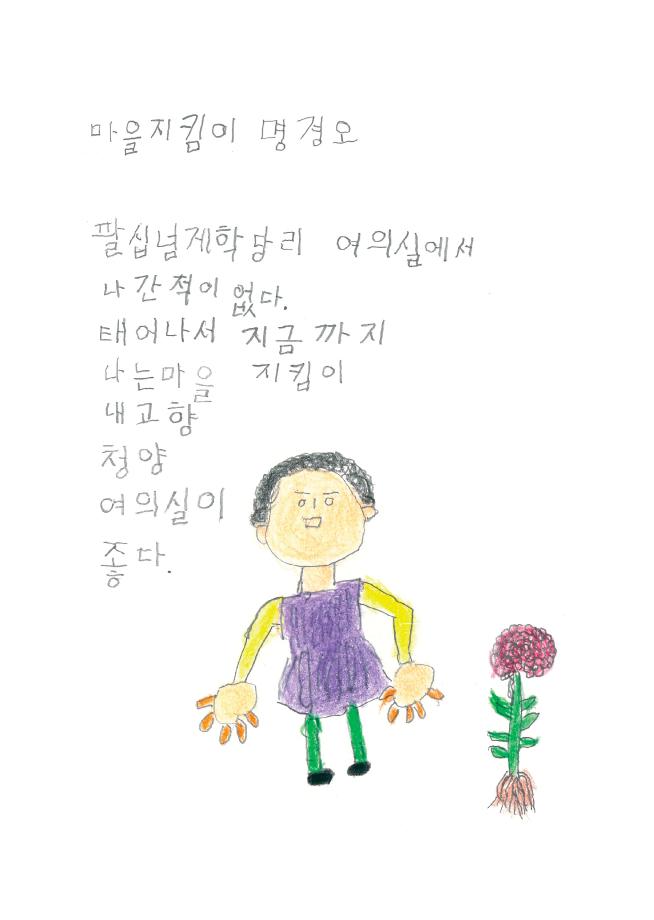 마을지킴이 명경오
팔십넘게학당리 여의실에서
나간적이 없다.
태어나서 지금까지
나는마을 지킴이
내고향
청양
여의실이
좋다.